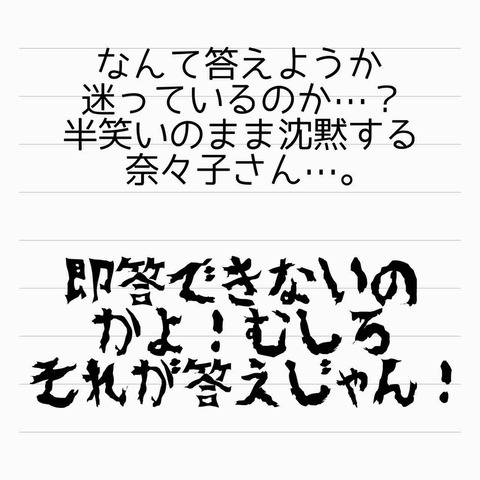 なんて答えようか
迷っているのか…？
半笑いのまま沈黙する
奈々子さん…。
即答できないの
かよ！むしろ
それが答えじゃん！